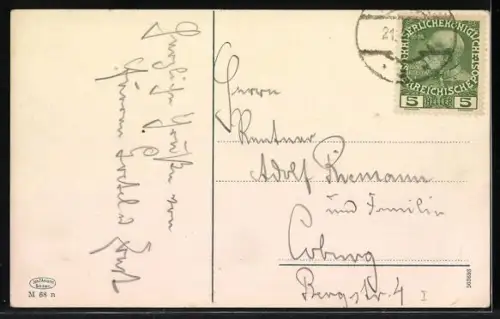 Herzliche Grüße von
21.
KAISERLICHE KÖNIGLICHE
ÖSTERREICHISCHE POST
5 HELLER 5
Herrn
Rentner
Adolf Riemann
und Familie
Coburg
Bergstr. 4 I
M 68 n